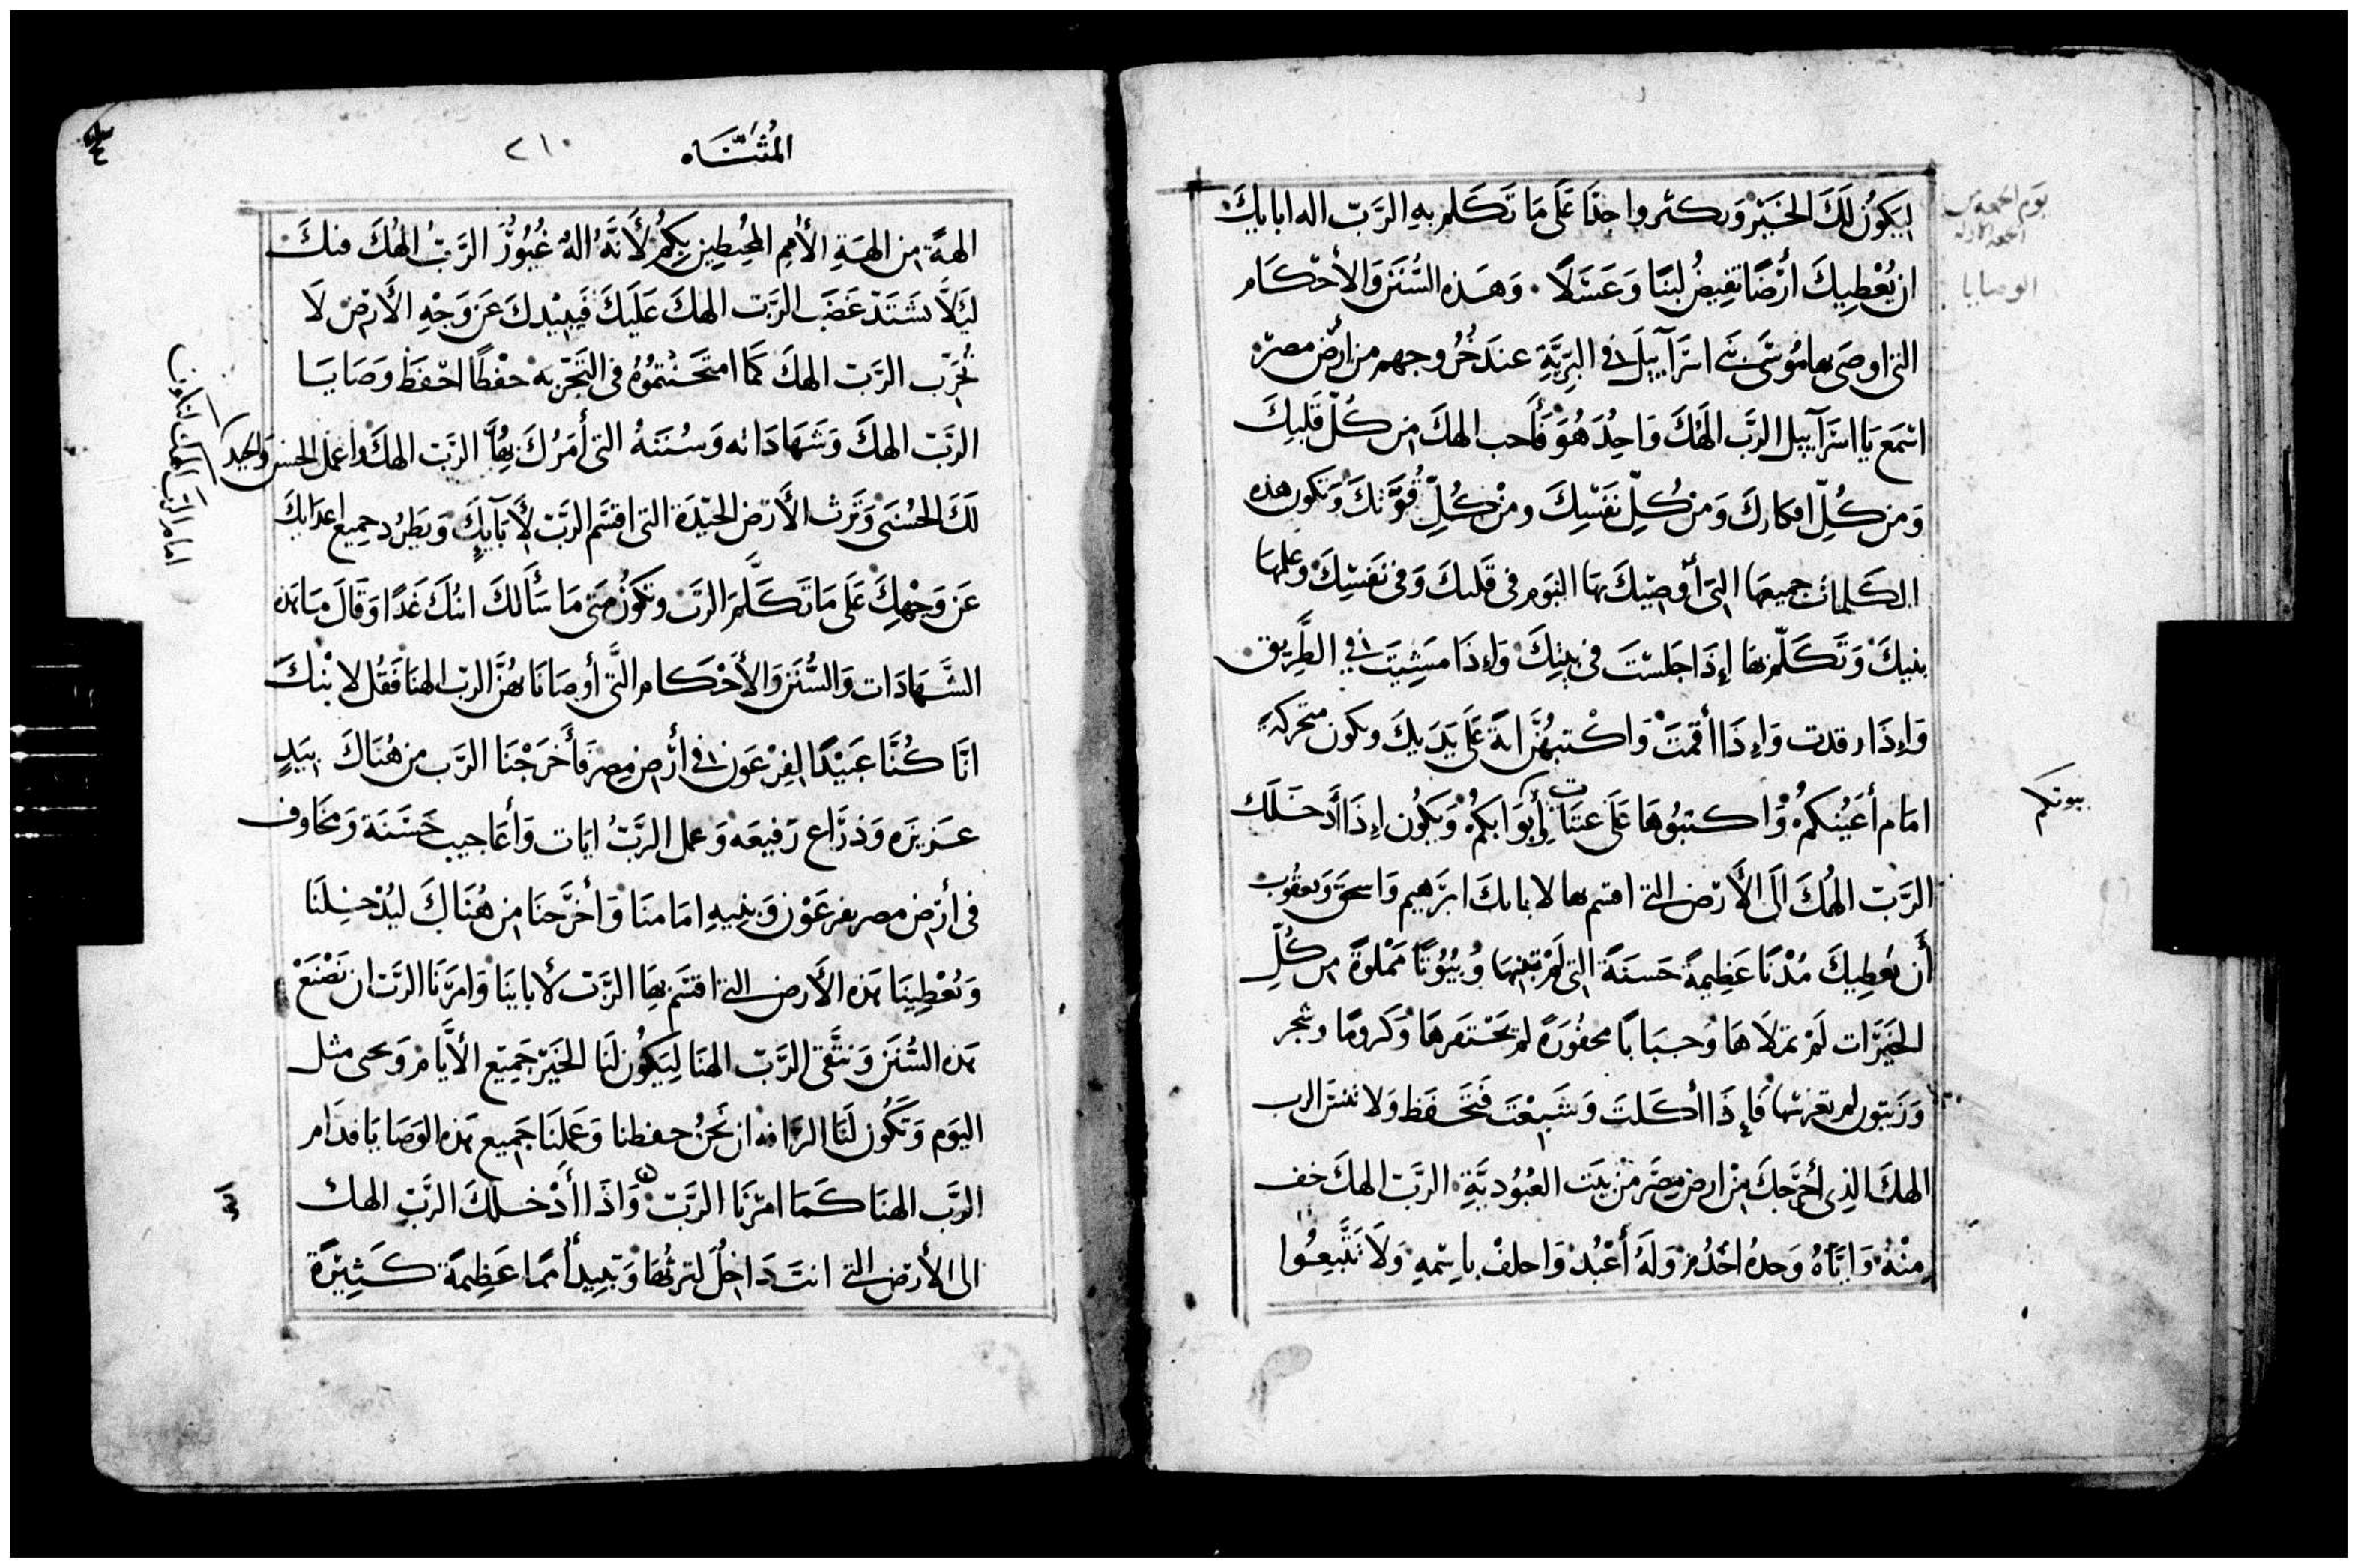 ليكون لك الخير وتكثروا جدا على ما تكلم به الرب اله ابايك
ان يعطيك أرضا تفيض لبنا وعسلا . وهذه السنن والأحكام
التى اوصى بها موسى بنى اسرآييل فى البرية عند خروجهم من ارض مصر
اسمع يا اسرآييل الرب الهك واحد هو فأحب الهك من كل قلبك
ومن كل افكارك ومن كل نفسك ومن كل قوتك وتكون هذه
الكلمات جميعها التى أوصيك بها اليوم فى قلبك وفى نفسك وعلمها
بنيك وتكلم بها إذا جلست فى بيتك وإذا مشيت في الطريق
وإذا رقدت وإذا أقمت واكتبهن اية على يديك وتكون متحركة
امام أعينكم واكتبوها على عتبات أبوابكم ويكون إذا أدخلك
الرب الهك الى الأرض التى اقسم بها لابايك ابرهيم واسحق ويعقوب
أن يعطيك مدنا عظيمة حسنة التى لم تبنها وبيوتا مملوة من كل
الخيرات لم تملاها وجبابا محفورة لم تحتفرها وكروما وشجر
وزيتون لم تغرسها فإذا أكلت وشبعت فتحفظ ولا تنس الرب
الهك الذى أخرجك من ارض مصر من بيت العبودية الرب الهك خف
منه واياه وحده اخدم وله أعبد واحلف باسمه ولا تتبعوا
يوم الجمعه من
الجمعه الاوله
الوصايا
بيوتكم
المثناه ٢١٠
الهة من الهة الأمم المحيطين بكم لأنه اله غيور الرب الهك فيك
ليلا يشتد غضب الرب الهك عليك فيبيدك عن وجه الأرض لا
تجرب الرب الهك كما امتحنتموه فى التجربه حفظا احفظ وصايا
الرب الهك وشهاداته وسننه التى أمرك بها الرب الهك واعمل الحسن والجيد
لك الحسنى وترث الأرض الجيدة التى اقسم الرب لأبآيك ويطرد جميع اعدايك
عن وجهك على ما تكلم الرب وتكون متى ما سألك ابنك غدا وقال ما هذه
الشهادات والسنن والأحكام التى أوصانا بهن الرب الهنا فقل لابنك
انا كنا عبيدا لفرعون فى أرض مصر فأخرجنا الرب من هناك بيد
عزيزه وذراع رفيعه وعمل الرب ايات وأعاجيب حسنة ومخاوف
فى أرض مصر بفرعون وبنيه امامنا وأخرجنا من هناك ليدخلنا
ويعطينا هذه الأرض التى اقسم بها الرب لأبابينا وامرنا الرب ان نصنع
هذه السنن ونتقى الرب الهنا ليكون لنا الخير جميع الأيام ونحيى مثل
اليوم وتكون لنا الرافه ان نحن حفظنا وعملنا جميع هذه الوصايا قدام
الرب الهنا كما امرنا الرب واذا أدخلك الرب الهك
الى الأرض التى انت داخل لترثها وتبيد أمما عظيمة كثيرة
امام الرب الهك لتكون